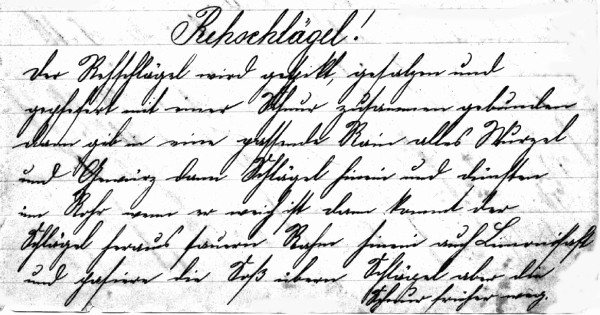 Rehschlägel!
Der Rehschlägel wird gespikt, gesalzen und
gepfefert mit einer Schnur zusammen gebunden
dann gib in eine passende Rain alles Wurzel
und Gewürz dann Schlägel hinein und dünsten
im Rohr wenn er weich ist dann kommt der
Schlägel heraus sauern Rahm hinein auch Limonisaft
und pasiere die Soß übern Schlägel aber die
Schnur früher weg.